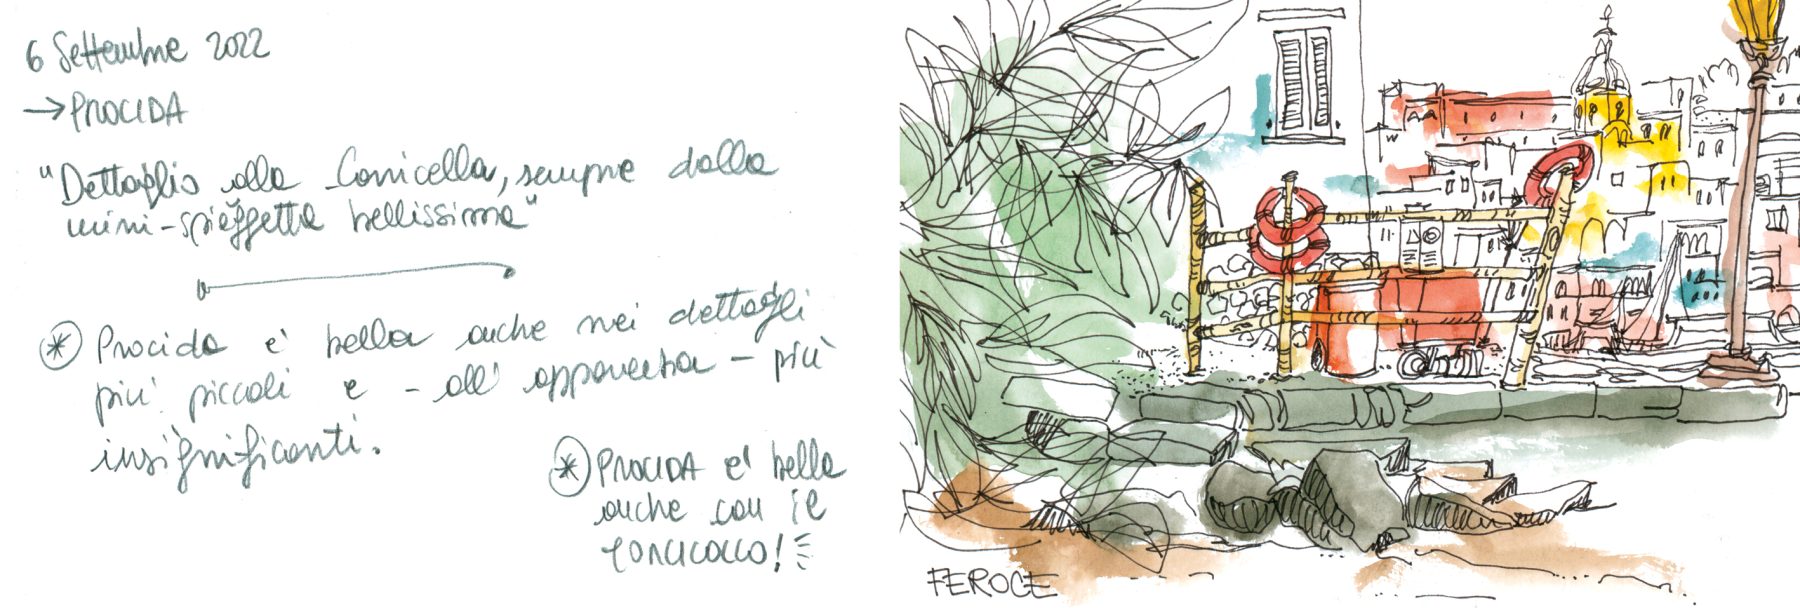 6 Settembre 2022
→ PROCIDA
"Dettaglio alla Corricella, sempre dalla
mini-spiaggetta bellissima"
* Procida e' bella anche nei dettagli
piu' piccoli e - all' apparenza - più
insignificanti.
* PROCIDA e' bella
anche con il
!
FEROCE